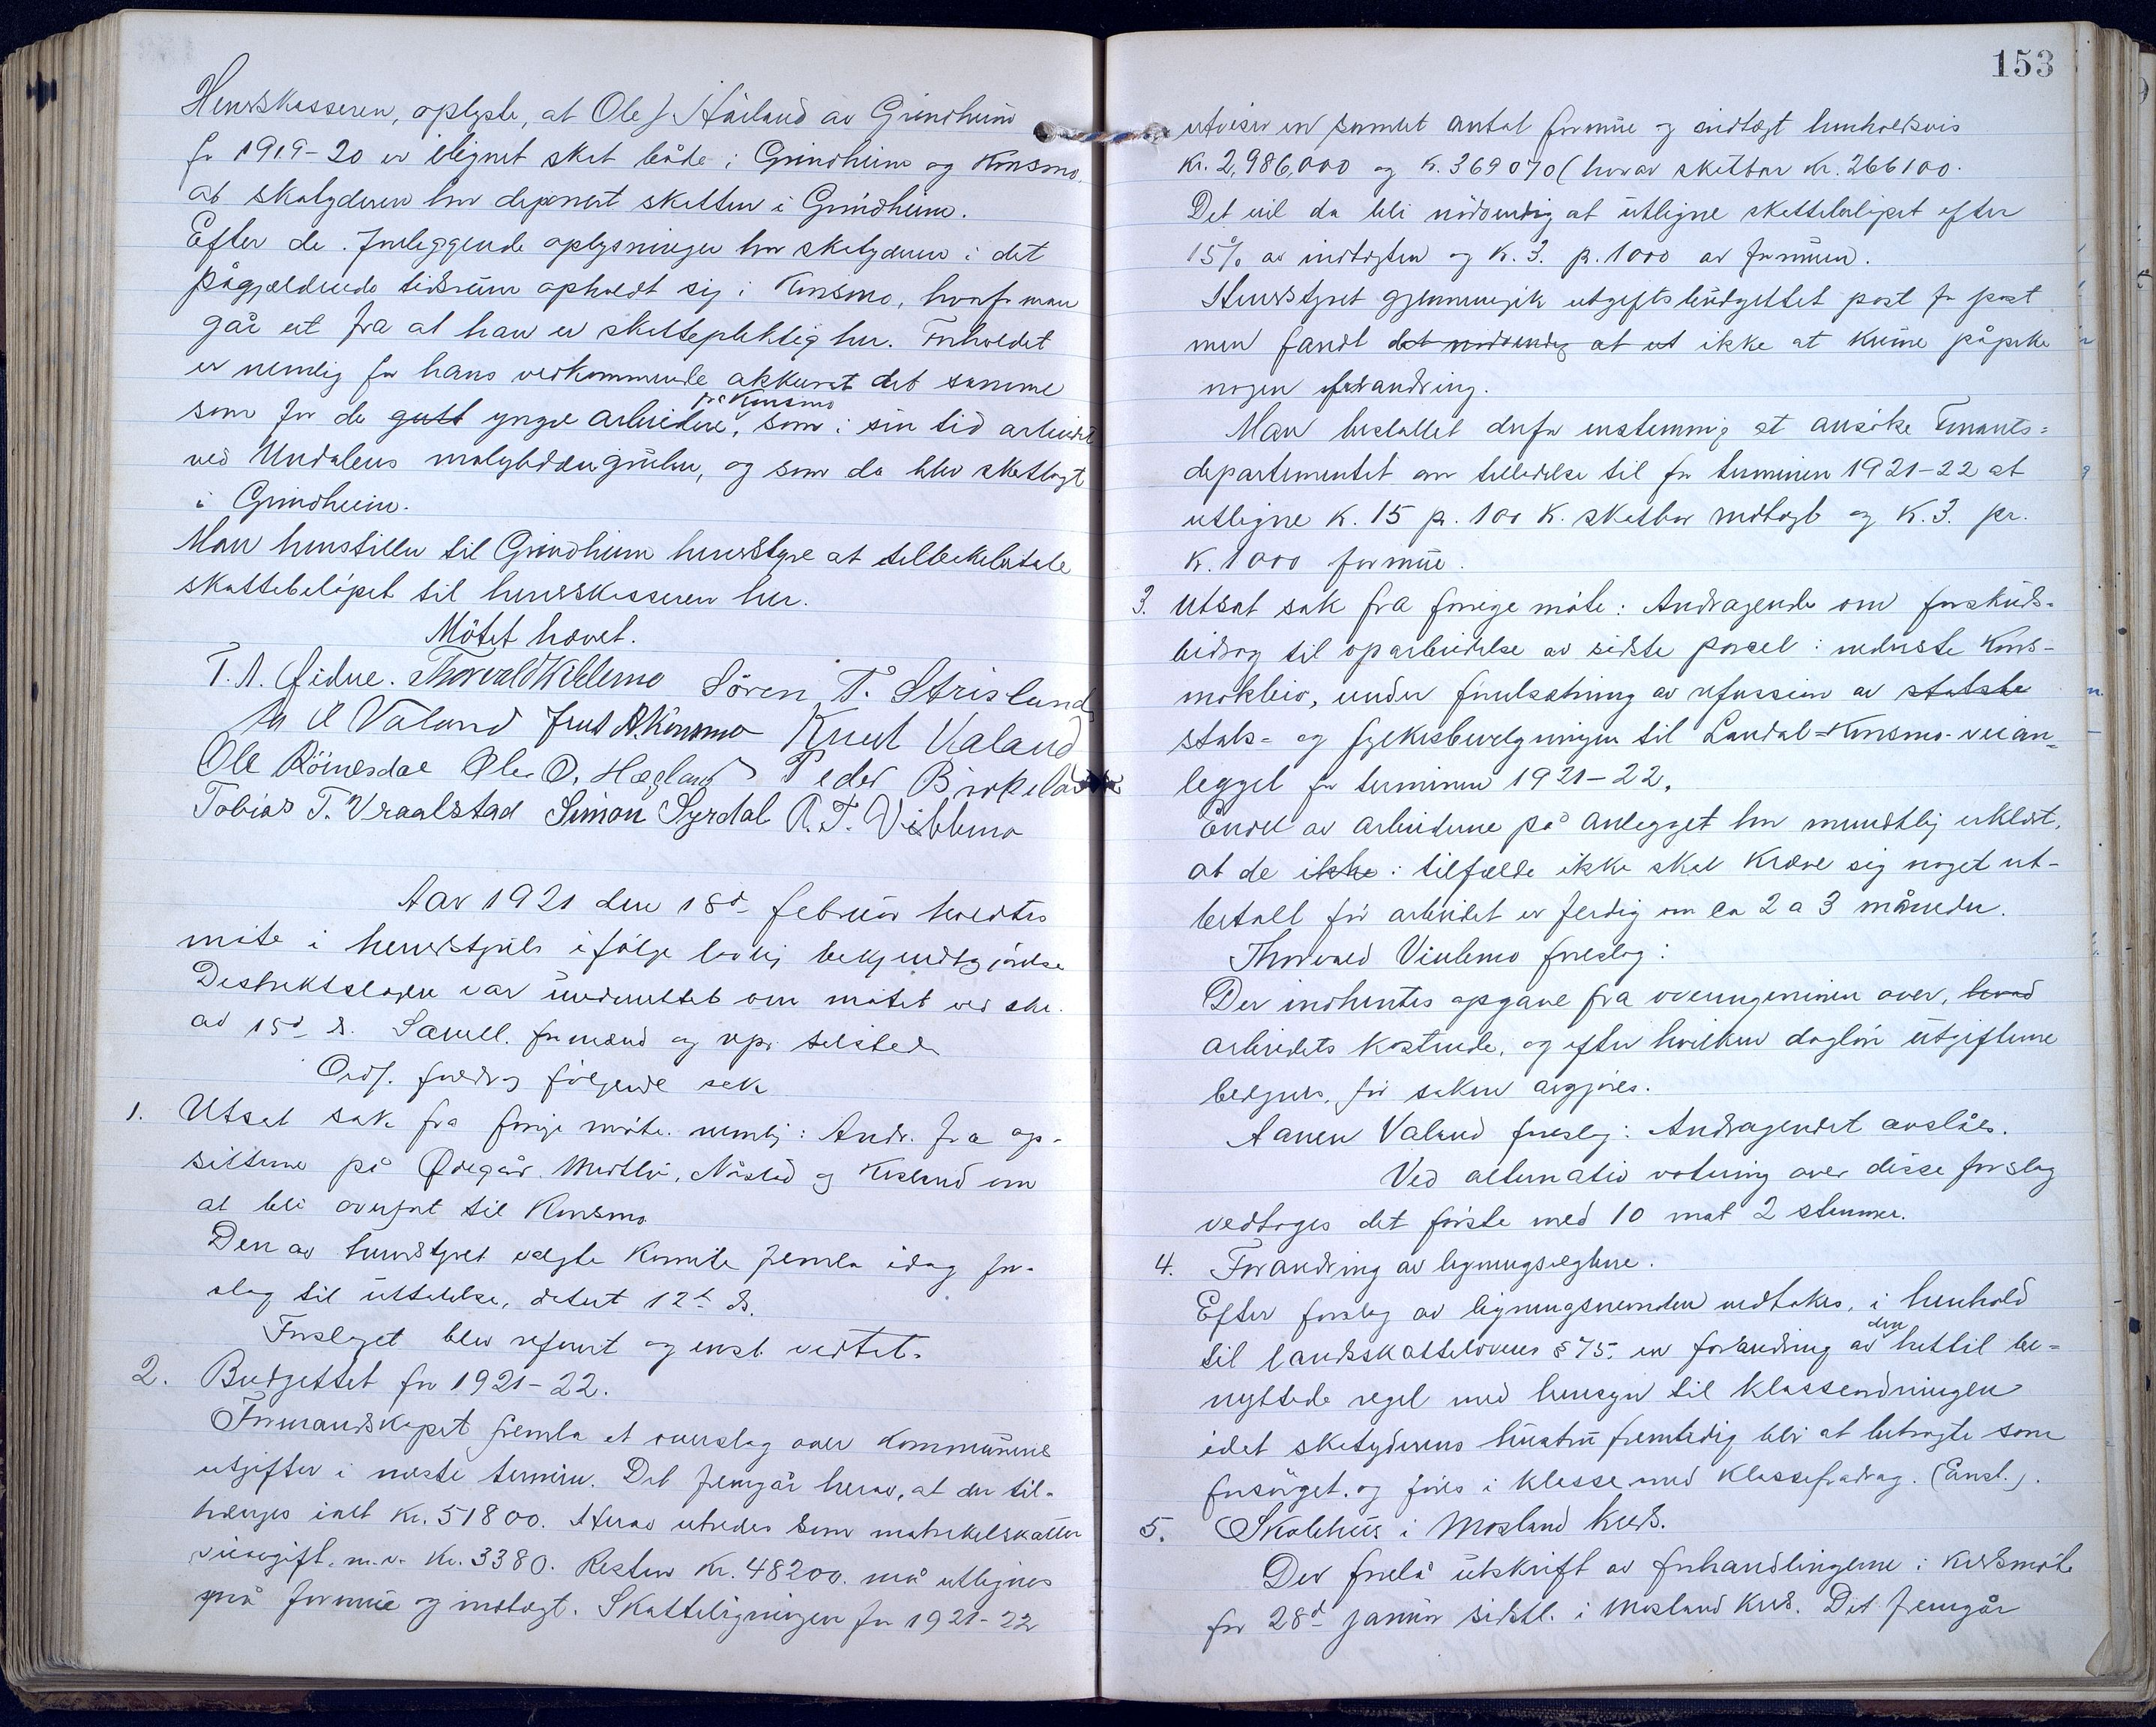 Herredskasseren, oplyste, at Ole J Håland av Grindheim
for 1919-20 er ilignet skat både i Grindheim og Konsmo,
at skatyderen har deponert skatten i Grindheim.
Efter de foreliggende oplysninger har skatyderen i det
pågjældende tidsrum opholdt sig i Konsmo, hvorfor man
går ut fra at han er skattepliktig her. Forholdet
er nemlig for hans vedkommende akkurat det samme
som for de gutt yngre arbeidere, fra Konsmo som i sin tid arbeidet
ved Undalens molybdængruber, og som da blev skatlagt
i Grindheim.
Man henstiller til Grindheim herredstyre at tilbakebetale
skattebeløpet til herredskasseren her.
Møtet hævet.
T. A. Øidne. Thorvald Viblemo Sören T. Strisland
Aa A Valand Jens A. Konsmo Knut Valand
Ole Röinesdal Ole O. Hægland Peder Birkeland
Tobias T. Vraalstad Simon Syrdal A. T. Viblemo
Aar 1921 den 18d februar holdtes
møte i herredstyret ifølge lovlig bekjendtgjørelse
Distriktslægen var underrettet om møtet ved skr.
av 15d ds. Samtl. formænd og repr. tilstede
Ordf. foredrog følgende sak
1. Utsat sak fra forrige møte. nemlig: Andr. fra op-
sitterne på Ødegår. Mestlu, Nåstad og Kisland om
at bli overført til Konsmo
Den av herredstyret valgte komite fremla idag for-
slag til uttalelse, datert 12te ds.
Forslaget blev referert og enst. vedtat.
2. Budgettet for 1921-22.
Formandskapet fremla et overslag over kommunens
utgifter i næste termin. Det fremgår herav, at der til-
trænges ialt Kr. 51800. Herav utredes som matrikelskatter
veiavgift. m.v. Kr. 3380. Resten Kr. 48200. må utlignes
på formue og indtægt. Skatteligningen for 1921-22
153
utviser en samlet antat formue og indtægt henholdsvis
Kr. 2,986,000 og Kr. 369070 (hvorav skatbar Kr. 266100.
Det vil da bli nödvendig at utligne skattebeløpet efter
15% av indtægten og Kr. 3. pr. 1000 av formuen.
Herredstyret gjennemgik utgiftsbudgettet post for post
men fandt det nødvendig at ut ikke at kunne påpeke
nogen forandring.
Man besluttet derfor enstemmig at ansøke Finants-
departementet om tilladelse til for terminen 1921-22 at
utligne Kr. 15 pr. 100 Kr. skatbar indtægt og Kr. 3. pr.
Kr. 1000 formue.
3. Utsat sak fra forrige møte: Andragende om forskuds-
bidrag til oparbeidelse av sidste parsel i nederste Kons-
mokleiv, under forutsætning av refusion av statste
stats- og fylkesbevilgningen til Laudal-Konsmo-veian-
legget for terminen 1921-22.
Endel av arbeiderne på anlegget har mundtlig erklært,
at de ikke i tilfælde ikke skal kræve sig noget ut-
betalt för arbeidet er ferdig om ca 2 a 3 måneder.
Thorvald Viblemo foreslog:
Der indhentes opgave fra overingeniøren over, hvad
arbeidets kostende, og efter hvilken daglön utgifterne
beregnes, för saken avgjöres.
Aanen Valand foreslog: Andragendet avslåes.
Ved alternativ votering over disse forslag
vedtoges det förste med 10 mot 2 stemmer.
4. Forandring av ligningsreglene.
Efter forslag av ligningsnemden vedtokes, i henhold
til landsskattelovens § 75. en forandring av den hittil be-
nyttede regel med hensyn til klasseordningen
idet skatyderens hustru fremtidig blir at betragte som
forsörget. og föres i klasse med klassefradrag. (Enst.).
5. Skolehus i Mosland kreds.
Der forelå utskrift av forhandlingerne i kredsmøte
for 28d januar sidstl. i Mosland kreds. Det fremgår